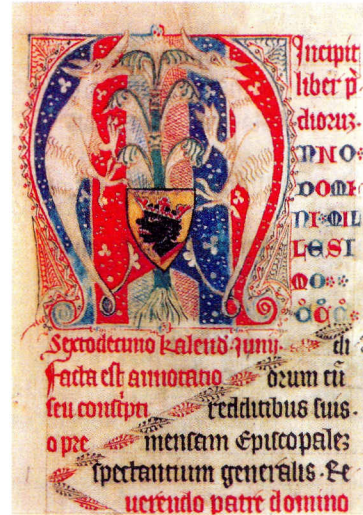 Incipit
liber p
diorum.
NNO
DOMI
NI MIL
LESI
MO
CCC
Sextodecimo kalend Junii di
Facta est annotatio orum cū
seu conscīpti redditibus suis.
o pre mensam Episcopalez
spectantium generalis. Re
uerendo patre domino